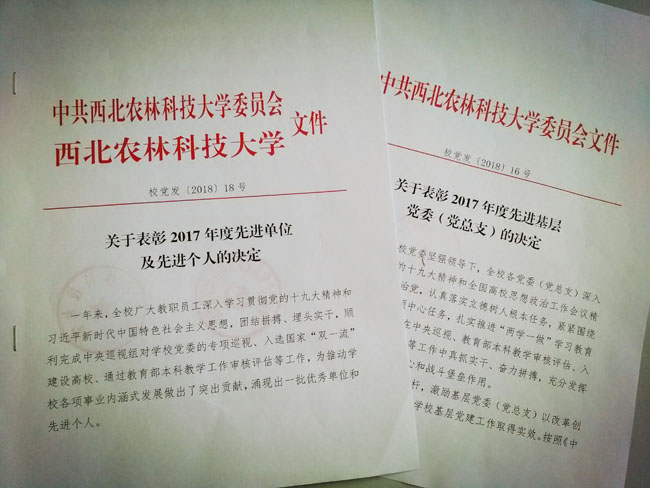 中共西北农林科技大学委员会
西北农林科技大学
文件
校党发〔2018〕18号
关于表彰2017年度先进单位
及先进个人的决定
一年来,全校广大教职员工深入学习贯彻党的十九大精神和
习近平新时代中国特色社会主义思想,团结拼搏、埋头实干,顺
利完成中央巡视组对学校党委的专项巡视、入选国家“双一流”
建设高校、通过教育部本科教学工作审核评估等工作,为推动学
校各项事业内涵式发展做出了突出贡献,涌现出一批优秀单位和
先进个人。
中共西北农林科技大学委员会文件
校党发〔2018〕16号
关于表彰2017年度先进基层
党委(党总支)的决定
校党委坚强领导下,全校各党委(党总支)深入
为十九大精神和全国高校思想政治工作会议精
治党,认真落实立德树人根本任务,紧紧围绕
项中心任务,扎实推进“两学一做”学习教育
在中央巡视、教育部本科教学审核评估、入
等工作中真抓实干、奋力拼搏,充分发挥
心和战斗堡垒作用。
杆,激励基层党委(党总支)以改革创
学校基层党建工作取得实效。按照《中